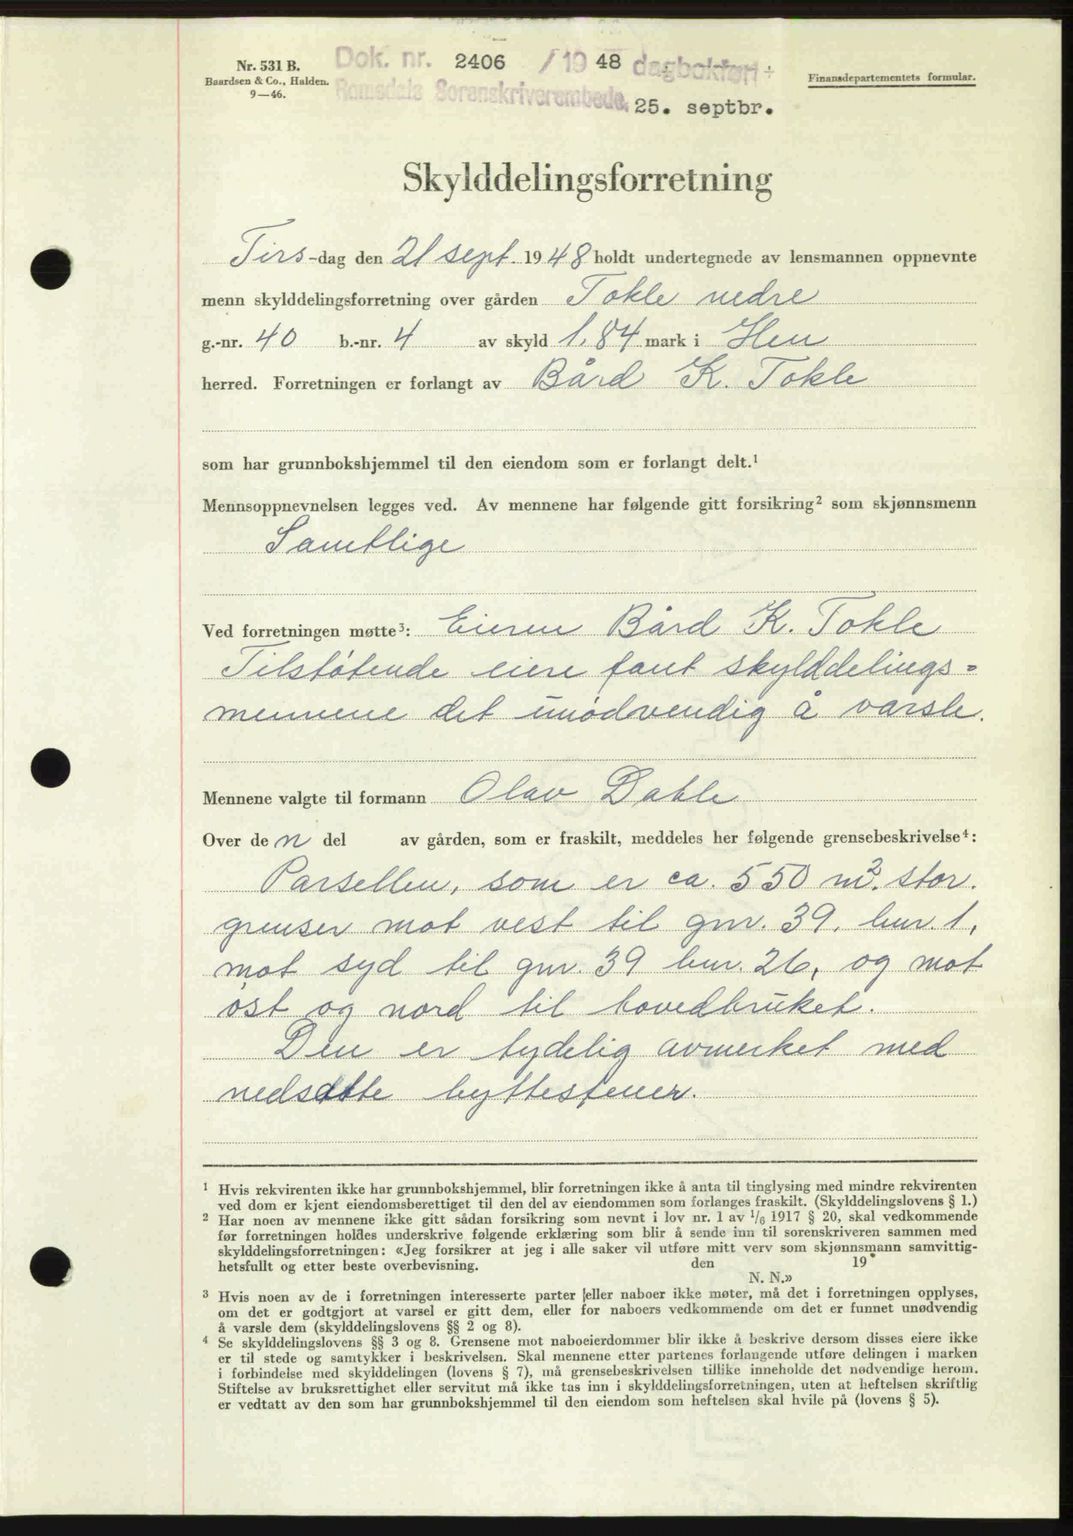 Nr. 531 B.
Baardsen & Co., Halden.
9—46.
Dok. nr. 2406 / 1948 dagbokført
Romsdals Sorenskriverembede, 25. septbr.
Finansdepartementets formular.
Skylddelingsforretning
Tirs-dag den 21 sept. 1948 holdt undertegnede av lensmannen oppnevnte
menn skylddelingsforretning over gården Tokle nedre
g.-nr. 40 b.-nr. 4 av skyld 1,84 mark i Hen
herred. Forretningen er forlangt av Bård K. Tokle
som har grunnbokshjemmel til den eiendom som er forlangt delt.¹
Mennsoppnevnelsen legges ved. Av mennene har følgende gitt forsikring² som skjønnsmenn
Samtlige
Ved forretningen møtte³: Eieren Bård K. Tokle
Tilstøtende eiere fant skylddelings=
mennene det unødvendig å varsle.
Mennene valgte til formann Olav Dahle
Over den del av gården, som er fraskilt, meddeles her følgende grensebeskrivelse⁴:
Parsellen, som er ca. 550 m². stor.
grenser mot vest til gnr. 39, bnr. 1,
mot syd til gnr. 39 bnr. 26, og mot
øst og nord til hovedbruket.
Den er tydelig avmerket med
nedsatte byttestener.
¹ Hvis rekvirenten ikke har grunnbokshjemmel, blir forretningen ikke å anta til tinglysing med mindre rekvirenten
ved dom er kjent eiendomsberettiget til den del av eiendommen som forlanges fraskilt. (Skylddelingslovens § 1.)
² Har noen av mennene ikke gitt sådan forsikring som nevnt i lov nr. 1 av 1/6 1917 § 20, skal vedkommende
før forretningen holdes underskrive følgende erklæring som blir å sende inn til sorenskriveren sammen med
skylddelingsforretningen: «Jeg forsikrer at jeg i alle saker vil utføre mitt verv som skjønnsmann samvittig-
hetsfullt og etter beste overbevisning. den 19
N. N.»
³ Hvis noen av de i forretningen interesserte parter eller naboer ikke møter, må det i forretningen opplyses,
om det er godtgjort at varsel er gitt dem, eller for naboers vedkommende om det er funnet unødvendig
å varsle dem (skylddelingslovens §§ 2 og 8).
⁴ Se skylddelingslovens §§ 3 og 8. Grensene mot naboeierdommer blir ikke å beskrive dersom disses eiere ikke
er til stede og samtykker i beskrivelsen. Skal mennene etter partenes forlangende utføre delingen i marken
i forbindelse med skylddelingen (lovens § 7), må grensebeskrivelsen tillike inneholde det nødvendige herom.
Stiftelse av bruksrettighet eller servitut må ikke tas inn i skylddelingsforretningen, uten at heftelsen skriftlig
er vedtatt av den som har grunnbokshjemmel til den eiendom som heftelsen skal hvile på (lovens § 5).